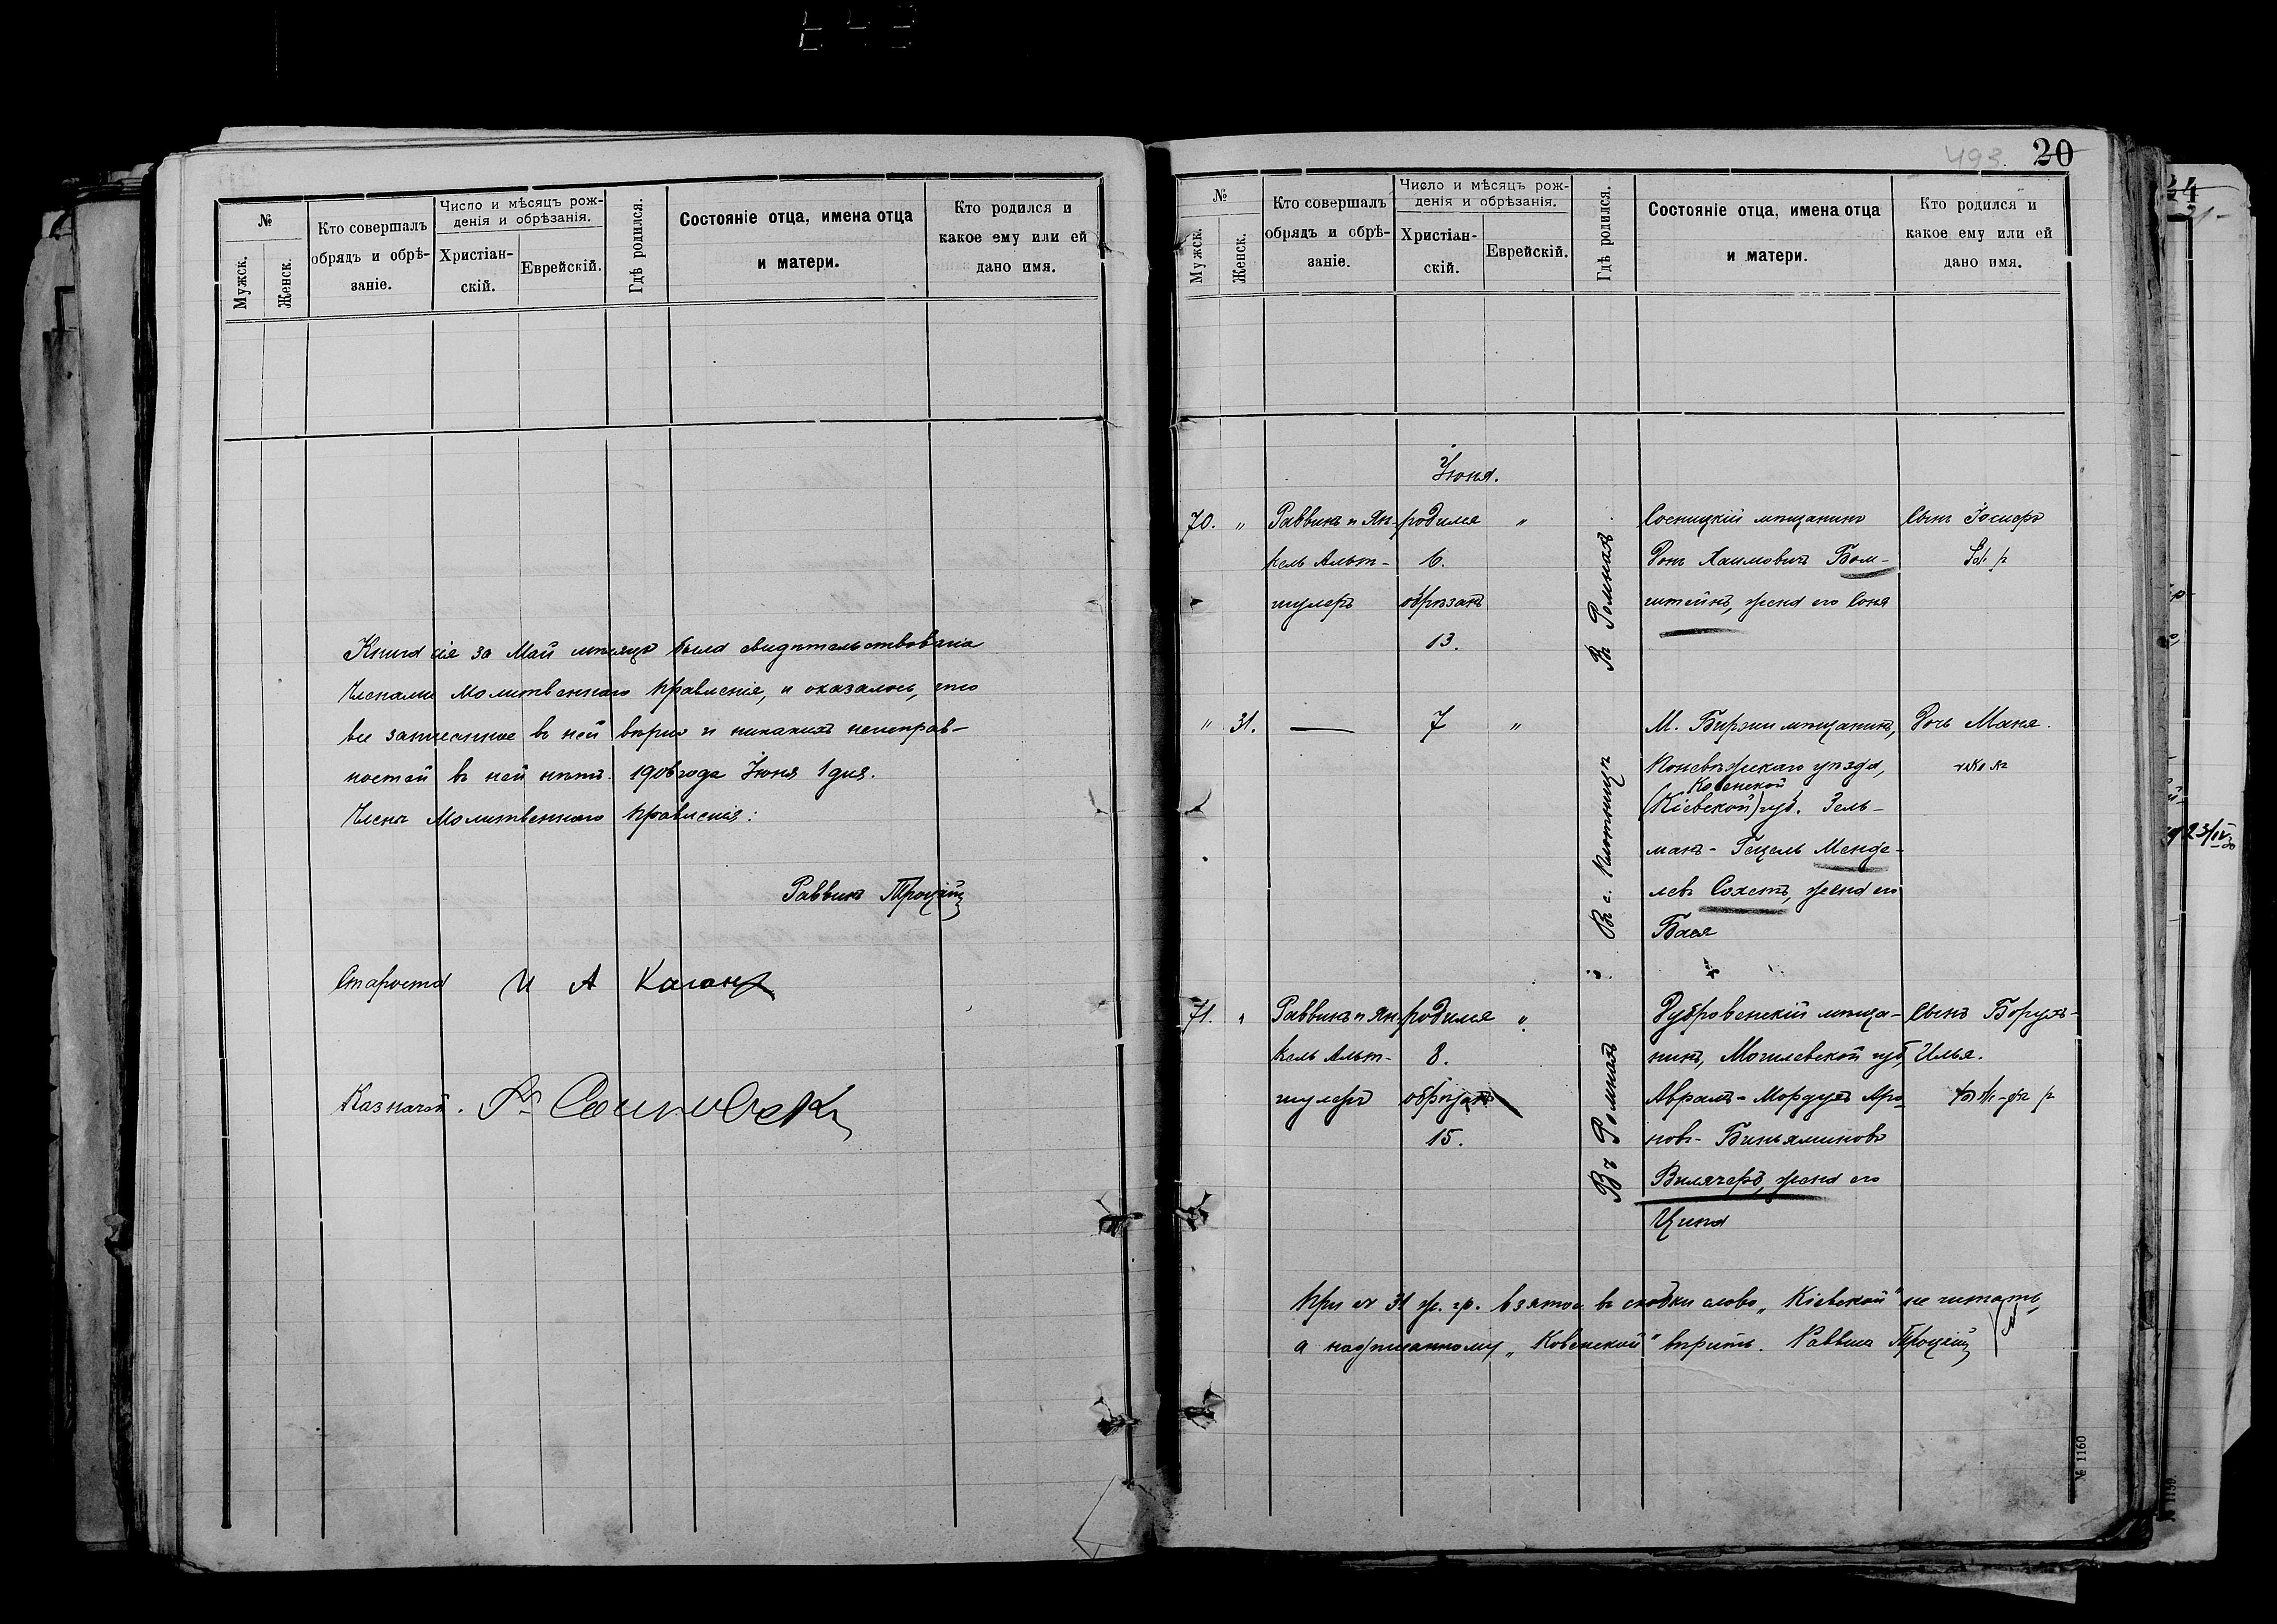 №
Мужск.
Женск.
Кто совершалъ
обрядъ и обрѣ-
заніе.
Число и мѣсяцъ рож-
денія и обрѣзанія.
Христіан-
скій.
Еврейскій.
Гдѣ родился.
Состояніе отца, имена отца
и матери.
Кто родился и
какое ему или ей
дано имя.
Книга сія за Май мѣсяцъ была свидѣтельствована
Членами Молитвеннаго Правленія, и оказалось, что
все записанное въ ней вѣрно и никакихъ неисправ-
ностей въ ней нѣтъ. 1906 года Іюня 1 дня.
Члены Молитвеннаго Правленія:
Раввинъ Троцкій
Староста И А Каганъ
Казначей.
493. 20
№
Мужск.
Женск.
Кто совершалъ
обрядъ и обрѣ-
заніе.
Число и мѣсяцъ рож-
денія и обрѣзанія.
Христіан-
скій.
Еврейскій.
Гдѣ родился.
Состояніе отца, имена отца
и матери.
Кто родился и
какое ему или ей
дано имя.
Іюня.
70. "
Раввинъ и Ян-
кель Альт-
шулеръ
родился "
6.
обрѣзанъ
13.
Въ Ромнахъ
Сосницкій мѣщанинъ
Хаимовичъ Бом-
штейнъ, жена его Соня
Сынъ Іосифъ
" 31. —
7 "
Въ с.
М. Биржи мѣщанинъ,
Поневѣжскаго уѣзда,
Ковенской
(Кіевской) губ. Зель-
манъ-Гецель Менде-
левъ Сохетъ, жена его
Бася
Дочь Маня.
71. "
Раввинъ и Ян-
кель Альт-
шулеръ
родился "
8.
обрѣзанъ
15.
Въ Ромнахъ
Дубровенскій мѣща-
нинъ, Могилевской губ,
Аврамъ-Мордухъ Аро-
новъ-Биньяминовъ
Вилячеръ, жена его
Ципа
Сынъ Борухъ-
Илья.
При № 31 ж. гр. взятое въ скобки слово „Кіевской" не читать,
а надписанному „Ковенской" вѣрить. Раввинъ Троцкій
№ 1160